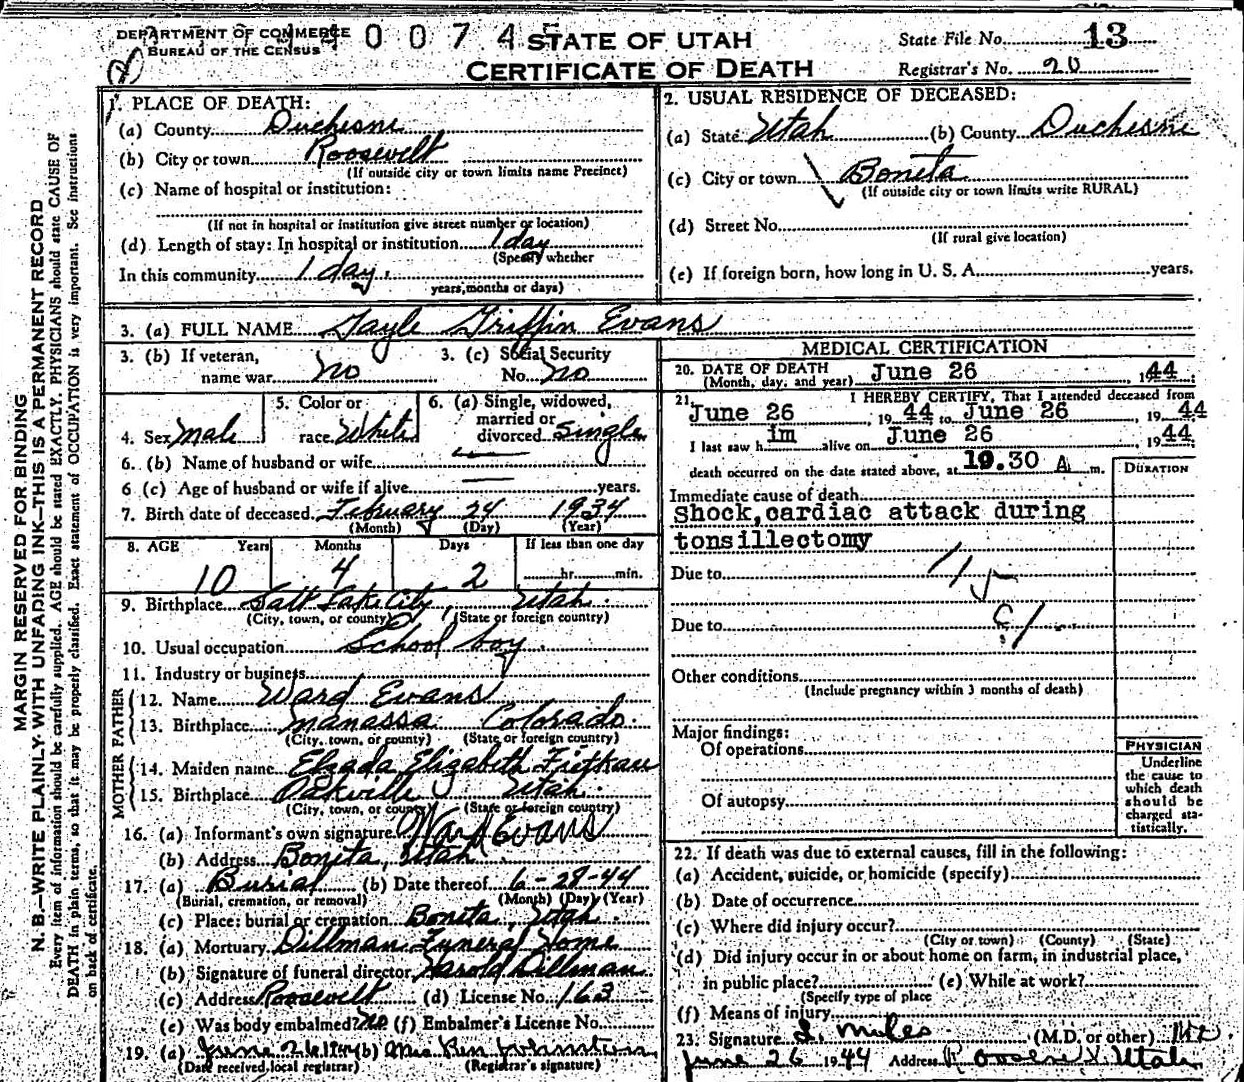 DEPARTMENT OF COMMERCE
BUREAU OF THE CENSUS
0 0 7 4 5
STATE OF UTAH
CERTIFICATE OF DEATH
State File No. 13
Registrar's No. 20
MARGIN RESERVED FOR BINDING
N. B.—WRITE PLAINLY, WITH UNFADING INK—THIS IS A PERMANENT RECORD
Every item of information should be carefully supplied. AGE should be stated EXACTLY. PHYSICIANS should state CAUSE OF
DEATH in plain terms, so that it may be properly classified. Exact statement of OCCUPATION is very important. See instructions
on back of certificate.
1. PLACE OF DEATH:
(a) County Duchesne
(b) City or town Roosevelt
(If outside city or town limits name Precinct)
(c) Name of hospital or institution:
(If not in hospital or institution give street number or location)
(d) Length of stay: In hospital or institution 1 day
(Specify whether
In this community 1 day.
years, months or days)
2. USUAL RESIDENCE OF DECEASED:
(a) State Utah (b) County Duchesne
(c) City or town Boneta
(If outside city or town limits write RURAL)
(d) Street No.
(If rural give location)
(e) If foreign born, how long in U. S. A. years.
3. (a) FULL NAME Gayle Griffin Evans
3. (b) If veteran,
name war No
3. (c) Social Security
No. No
4. Sex Male
5. Color or
race White
6. (a) Single, widowed,
married or
divorced Single
6. (b) Name of husband or wife
6 (c) Age of husband or wife if alive years.
7. Birth date of deceased February 24 1934
(Month) (Day) (Year)
8. AGE Years Months Days If less than one day
10 4 2 hr. min.
9. Birthplace Salt Lake City, Utah.
(City, town, or county) (State or foreign country)
10. Usual occupation School boy.
11. Industry or business
FATHER
12. Name Ward Evans
13. Birthplace Manassa Colorado.
(City, town, or county) (State or foreign country)
MOTHER
14. Maiden name Elizabeth
15. Birthplace Utah.
(City, town, or county) (State or foreign country)
16. (a) Informant's own signature Ward Evans
(b) Address Boneta, Utah
17. (a) Burial (b) Date thereof 6-28-44
(Burial, cremation, or removal) (Month) (Day) (Year)
(c) Place: burial or cremation Boneta, Utah.
18. (a) Mortuary Dillman Funeral Home
(b) Signature of funeral director Harold Dillman
(c) Address Roosevelt (d) License No. 163
(e) Was body embalmed? No (f) Embalmer's License No.
19. (a) June 26 1944 (b) Mrs. Ben
(Date received local registrar) (Registrar's signature)
MEDICAL CERTIFICATION
20. DATE OF DEATH
(Month, day, and year) June 26 , 1944
21. I HEREBY CERTIFY, That I attended deceased from
June 26 , 1944 to June 26 , 1944
I last saw h im alive on June 26 , 1944
death occurred on the date stated above, at 10.30 A m.
DURATION
Immediate cause of death
Shock, cardiac attack during
tonsillectomy
Due to
Due to
Other conditions
(Include pregnancy within 3 months of death)
Major findings:
Of operations
Of autopsy
PHYSICIAN
Underline
the cause to
which death
should be
charged sta-
tistically.
22. If death was due to external causes, fill in the following:
(a) Accident, suicide, or homicide (specify)
(b) Date of occurrence
(c) Where did injury occur?
(City or town) (County) (State)
(d) Did injury occur in or about home on farm, in industrial place,
in public place? (e) While at work?
(Specify type of place
(f) Means of injury
23. Signature Miles (M.D. or other) MD
June 26 1944 Address Roosevelt Utah